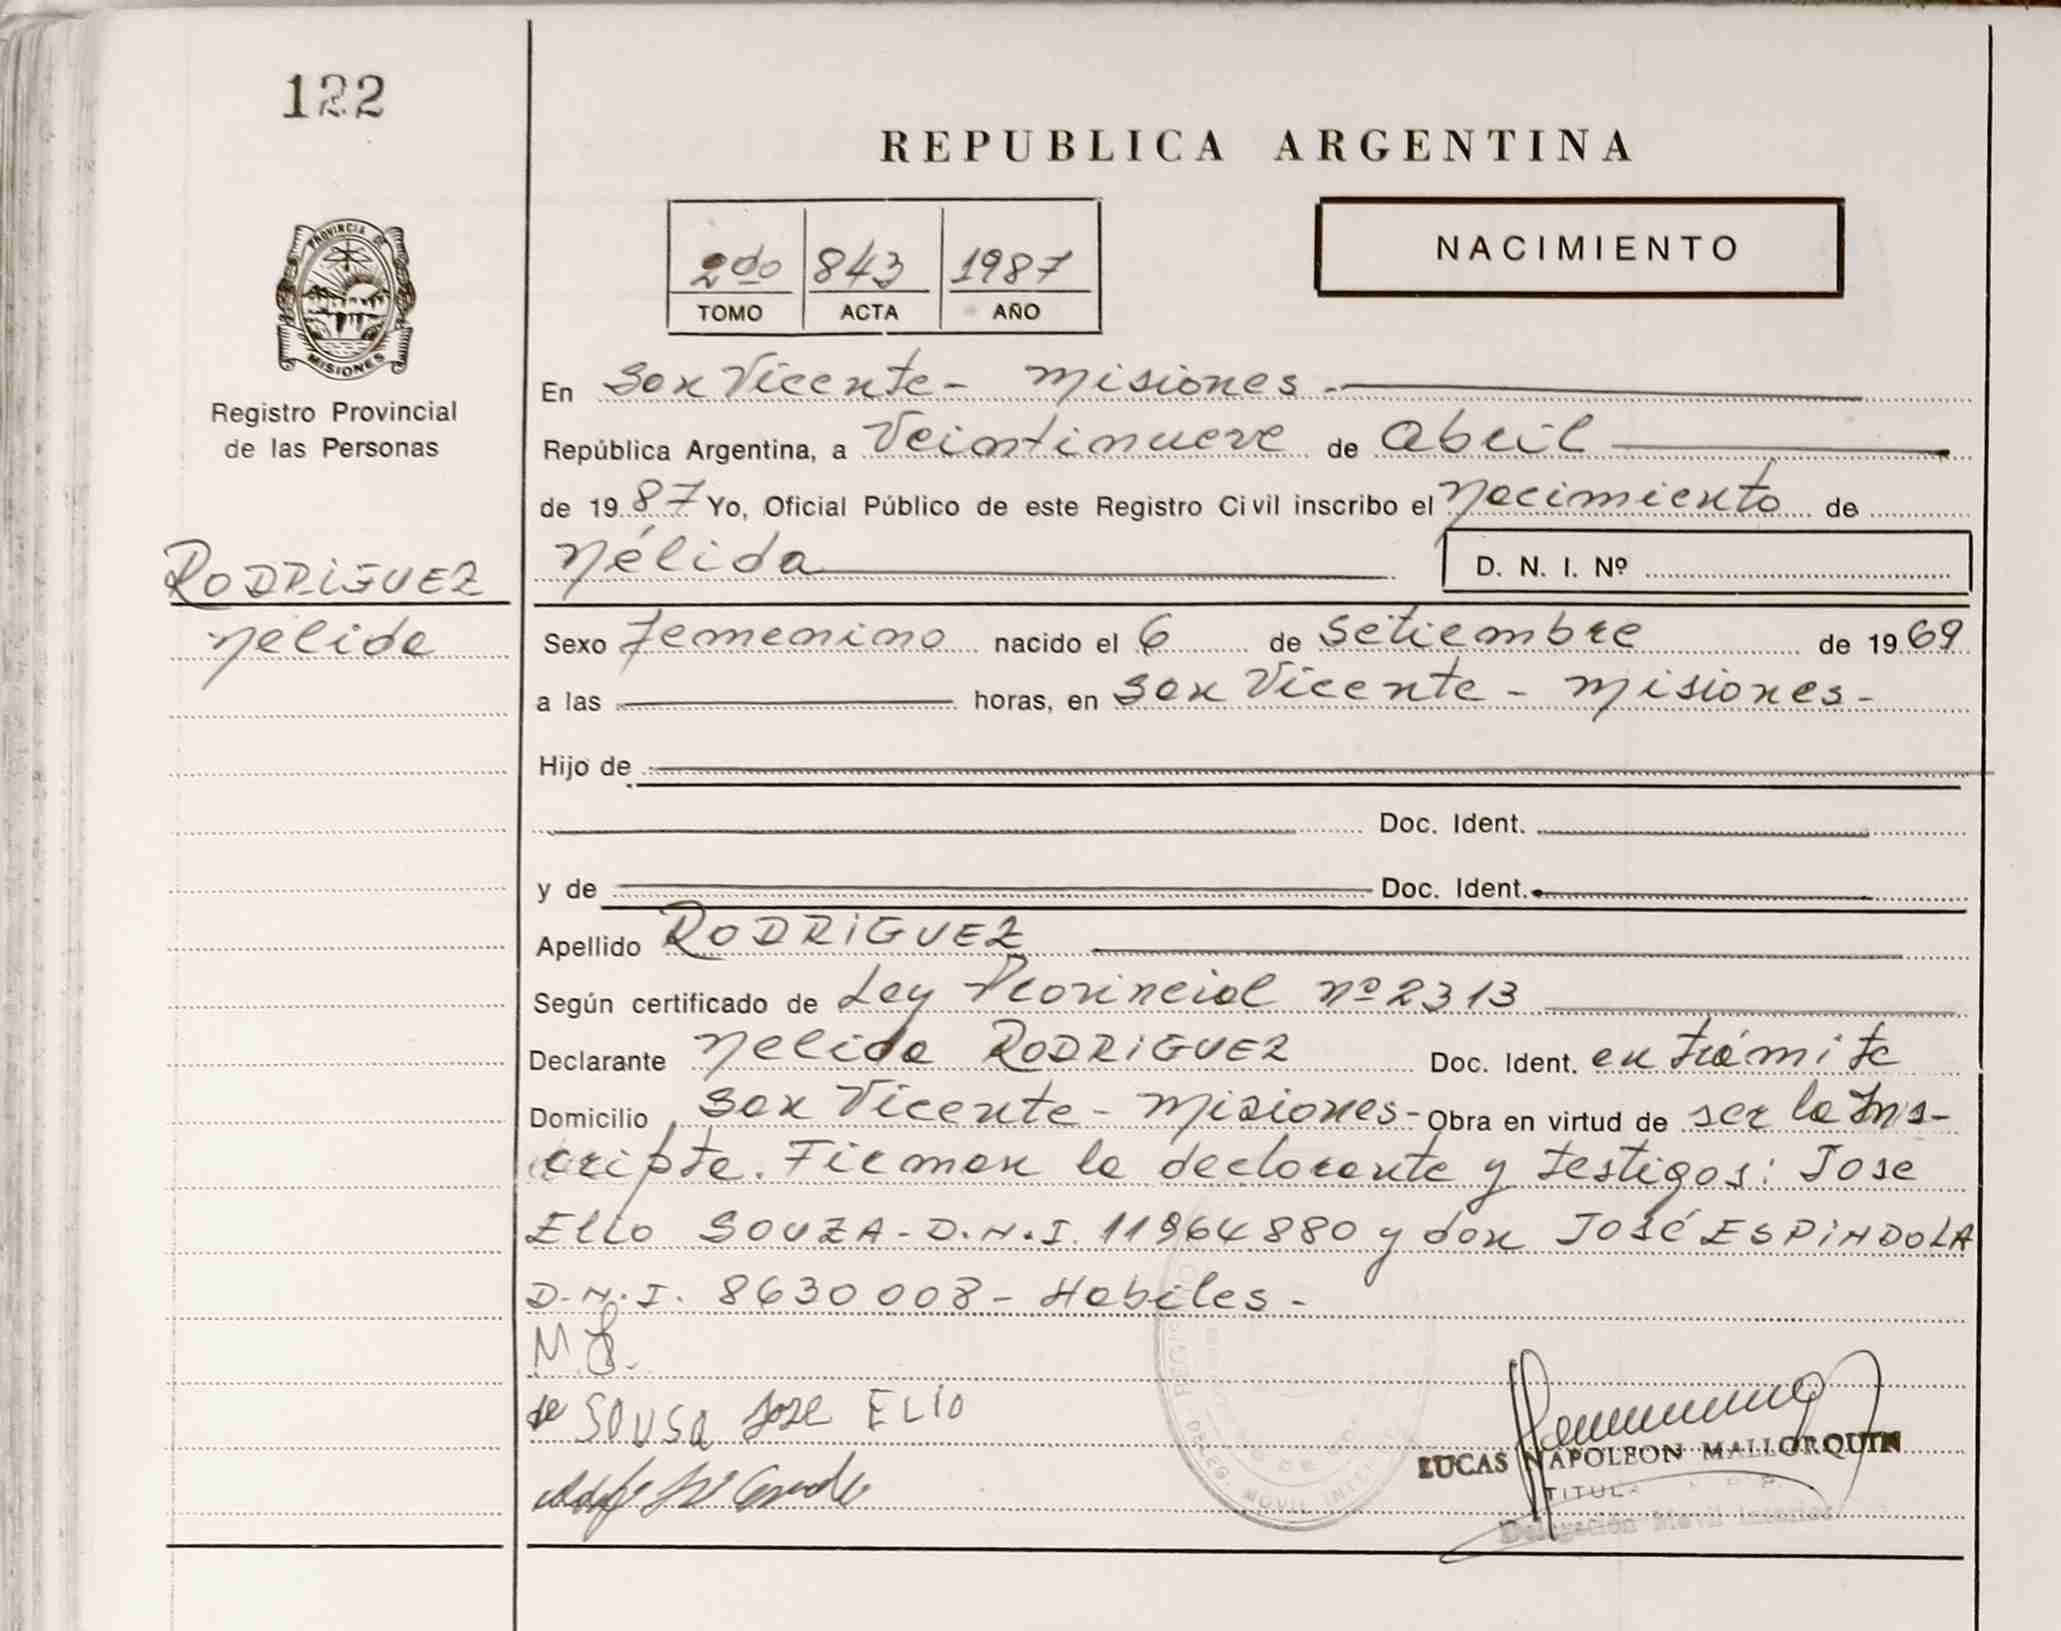 122
REPUBLICA ARGENTINA
2do 843 1987
TOMO ACTA AÑO
NACIMIENTO
PROVINCIA DE
MISIONES
Registro Provincial
de las Personas
En San Vicente - Misiones -
República Argentina, a Veintinueve de abril
de 1987 Yo, Oficial Público de este Registro Civil inscribo el Nacimiento de
Nélida D. N. I. Nº
RODRIGUEZ
Nélida
Sexo Femenino nacido el 6 de Setiembre de 1969
a las horas, en San Vicente - Misiones -
Hijo de
Doc. Ident.
y de Doc. Ident.
Apellido RODRIGUEZ
Según certificado de Ley Provincial nº 2313
Declarante Nelida RODRIGUEZ Doc. Ident. en trámite
Domicilio San Vicente - Misiones - Obra en virtud de ser la Ins-
cripta. Firman la declarante y testigos: Jose
Elio SOUZA - D.N.I. 11964880 y don José ESPINDOLA
D.N.I. 8630008 - Habiles -
de SOUSA Jose ELIO
LUCAS NAPOLEON MALLORQUIN
TITULAR
Delegación Movil Interior